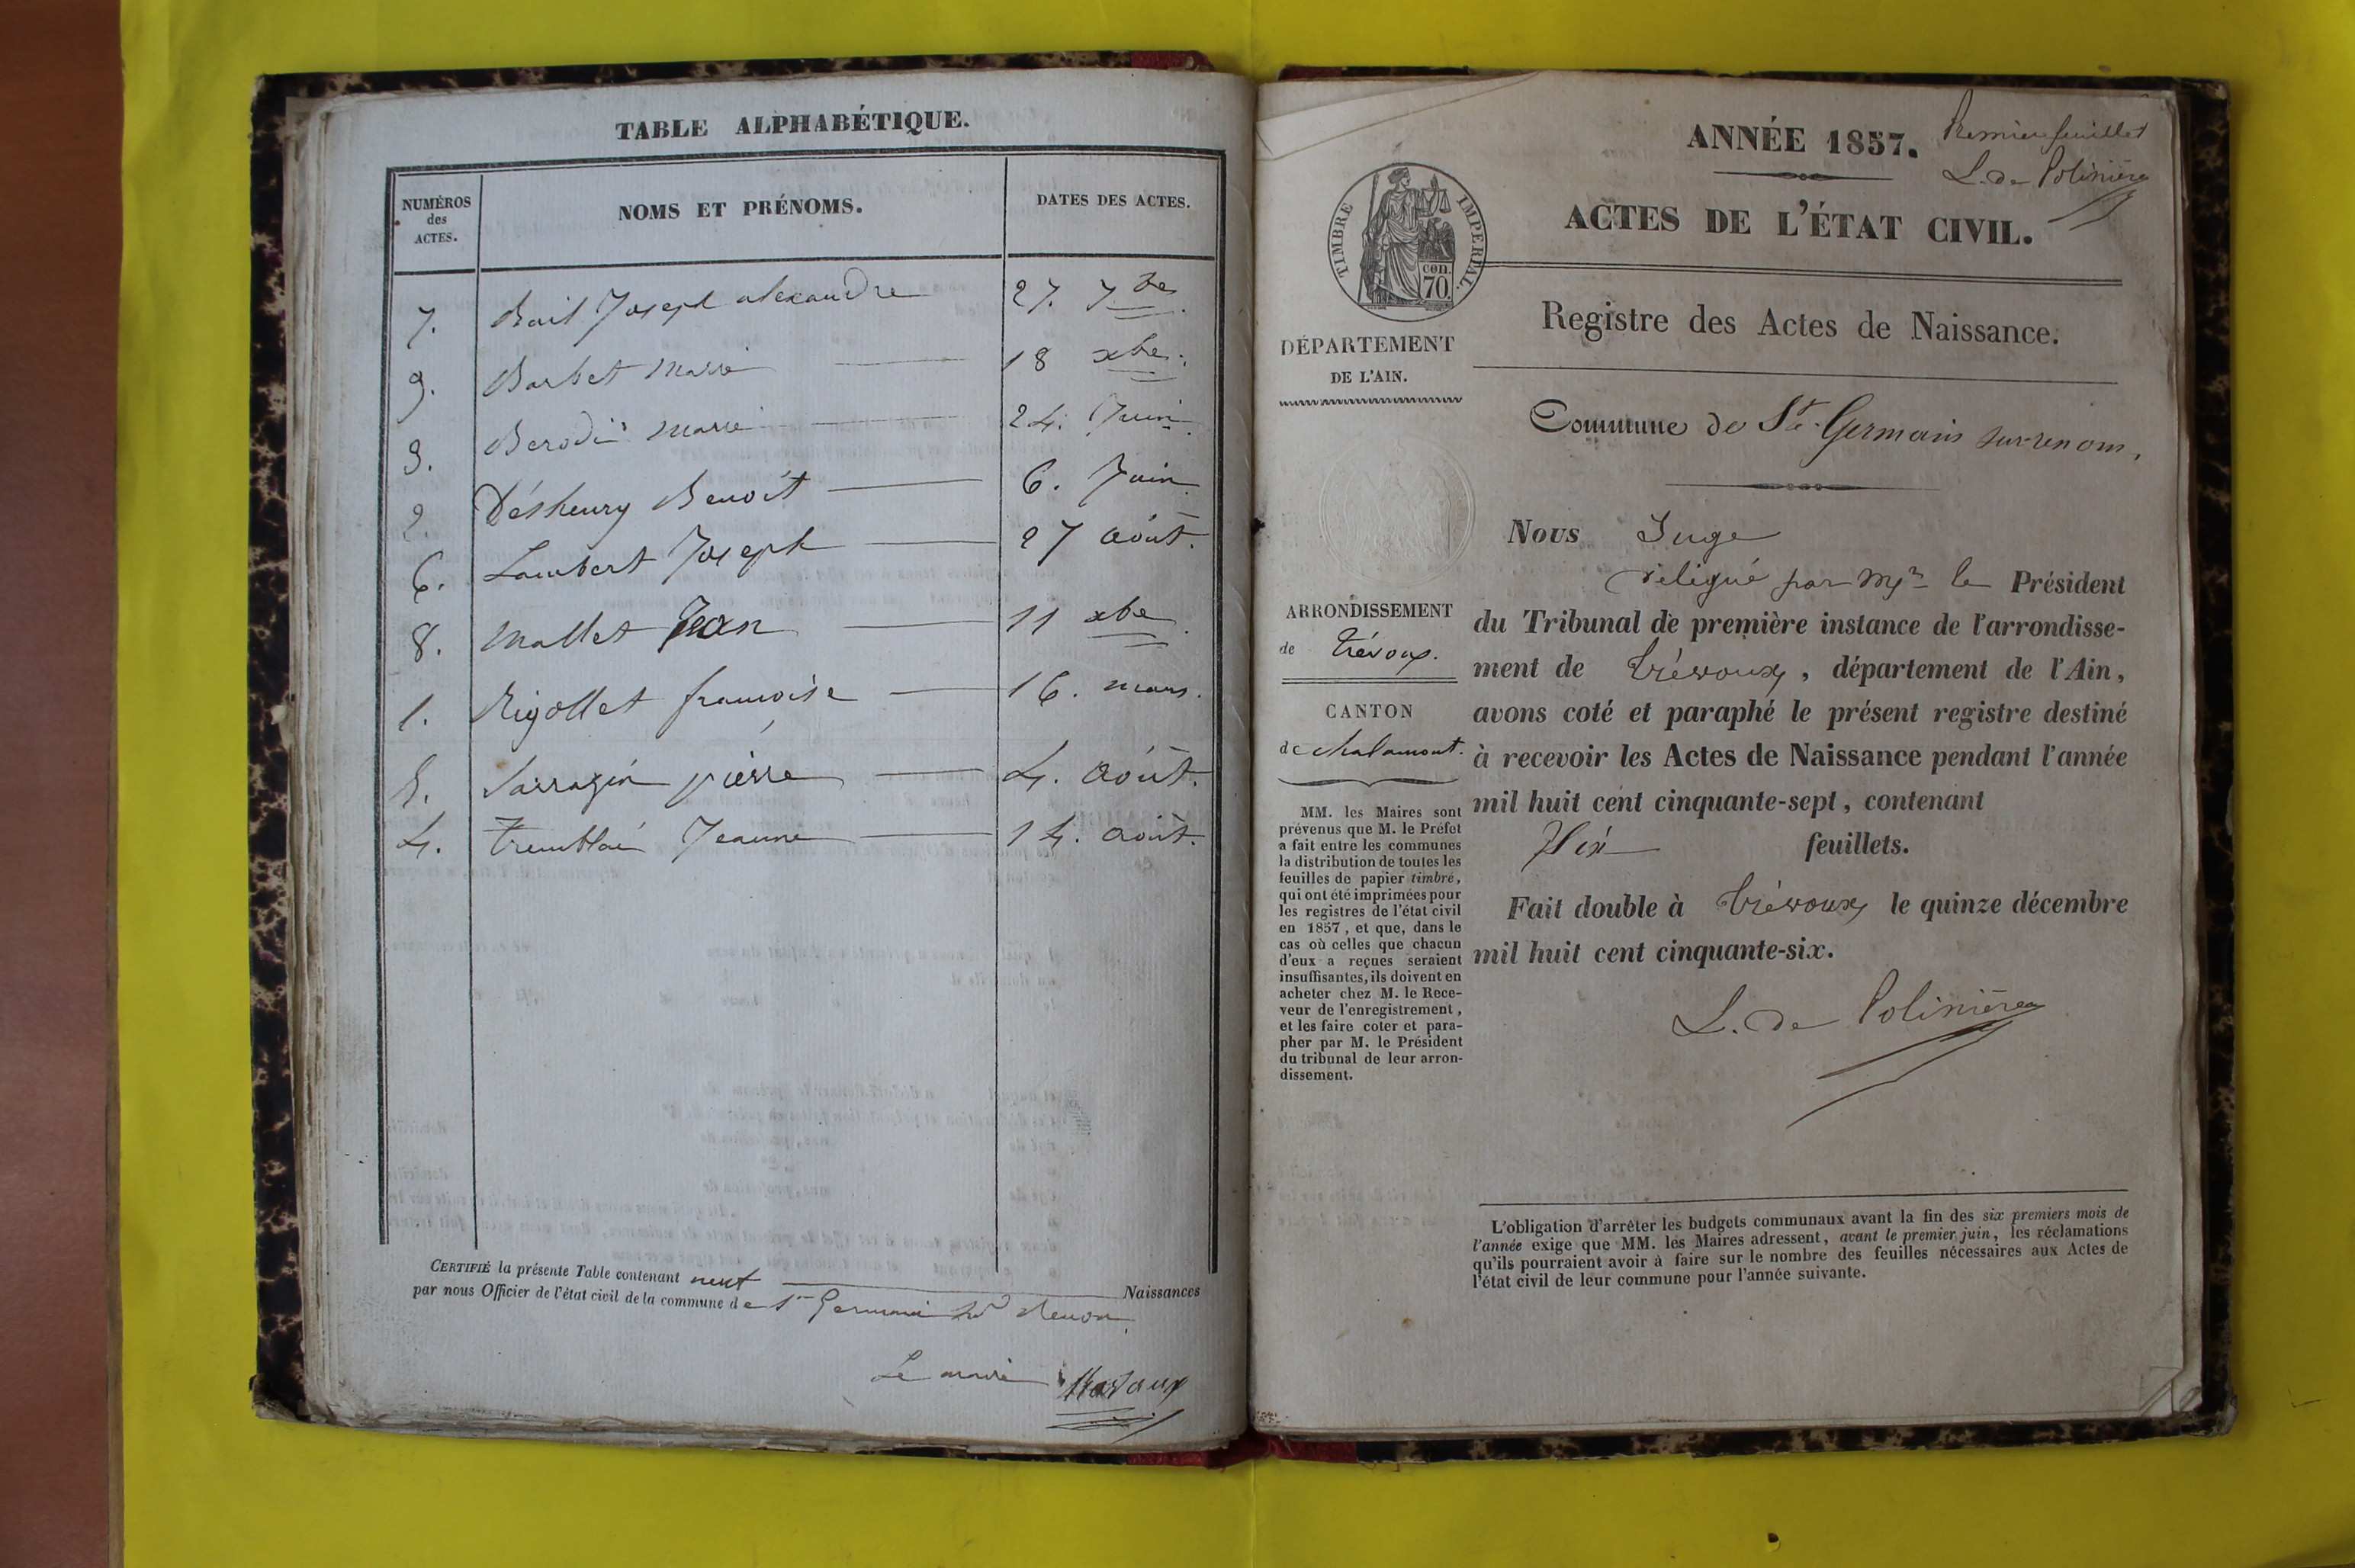 TABLE ALPHABÉTIQUE.
NUMÉROS des ACTES. NOMS ET PRÉNOMS. DATES DES ACTES.
7. Bail Joseph alexandre 27. 7bre
9. Barbet Marie 18 xbre.
3. Berodié Marie 24. Juin.
2. Deshenry Benoît 6. Juin.
6. Lambert Joseph 27 août.
8. Mallet Jean 11 xbre.
1. Rigollet francoise 16. mars.
5. Sarrazin pierre 4. Août.
4. Jeanne 14. août.
CERTIFIÉ la présente Table contenant neuf Naissances
par nous Officier de l'état civil de la commune de St Germain sur Renon.
Le maire
ANNÉE 1857.
Premier feuillet
L. de Polinière
TIMBRE IMPERIAL.
cen.
70
ACTES DE L'ÉTAT CIVIL.
Registre des Actes de Naissance.
DÉPARTEMENT
DE L'AIN.
Commune de St. Germain sur renom,
ARRONDISSEMENT
de Trévoux.
CANTON
de chalamont.
MM. les Maires sont
prévenus que M. le Préfet
a fait entre les communes
la distribution de toutes les
feuilles de papier timbré,
qui ont été imprimées pour
les registres de l'état civil
en 1857, et que, dans le
cas où celles que chacun
d'eux a reçues seraient
insuffisantes, ils doivent en
acheter chez M. le Rece-
veur de l'enregistrement,
et les faire coter et para-
pher par M. le Président
du tribunal de leur arron-
dissement.
Nous Juge
délégué par Mr le Président
du Tribunal de première instance de l'arrondisse-
ment de Trévoux, département de l'Ain,
avons coté et paraphé le présent registre destiné
à recevoir les Actes de Naissance pendant l'année
mil huit cent cinquante-sept, contenant
feuillets.
Fait double à Trévoux, le quinze décembre
mil huit cent cinquante-six.
L. de Polinière
L'obligation d'arrêter les budgets communaux avant la fin des six premiers mois de
l'année exige que MM. les Maires adressent, avant le premier juin, les réclamations
qu'ils pourraient avoir à faire sur le nombre des feuilles nécessaires aux Actes de
l'état civil de leur commune pour l'année suivante.